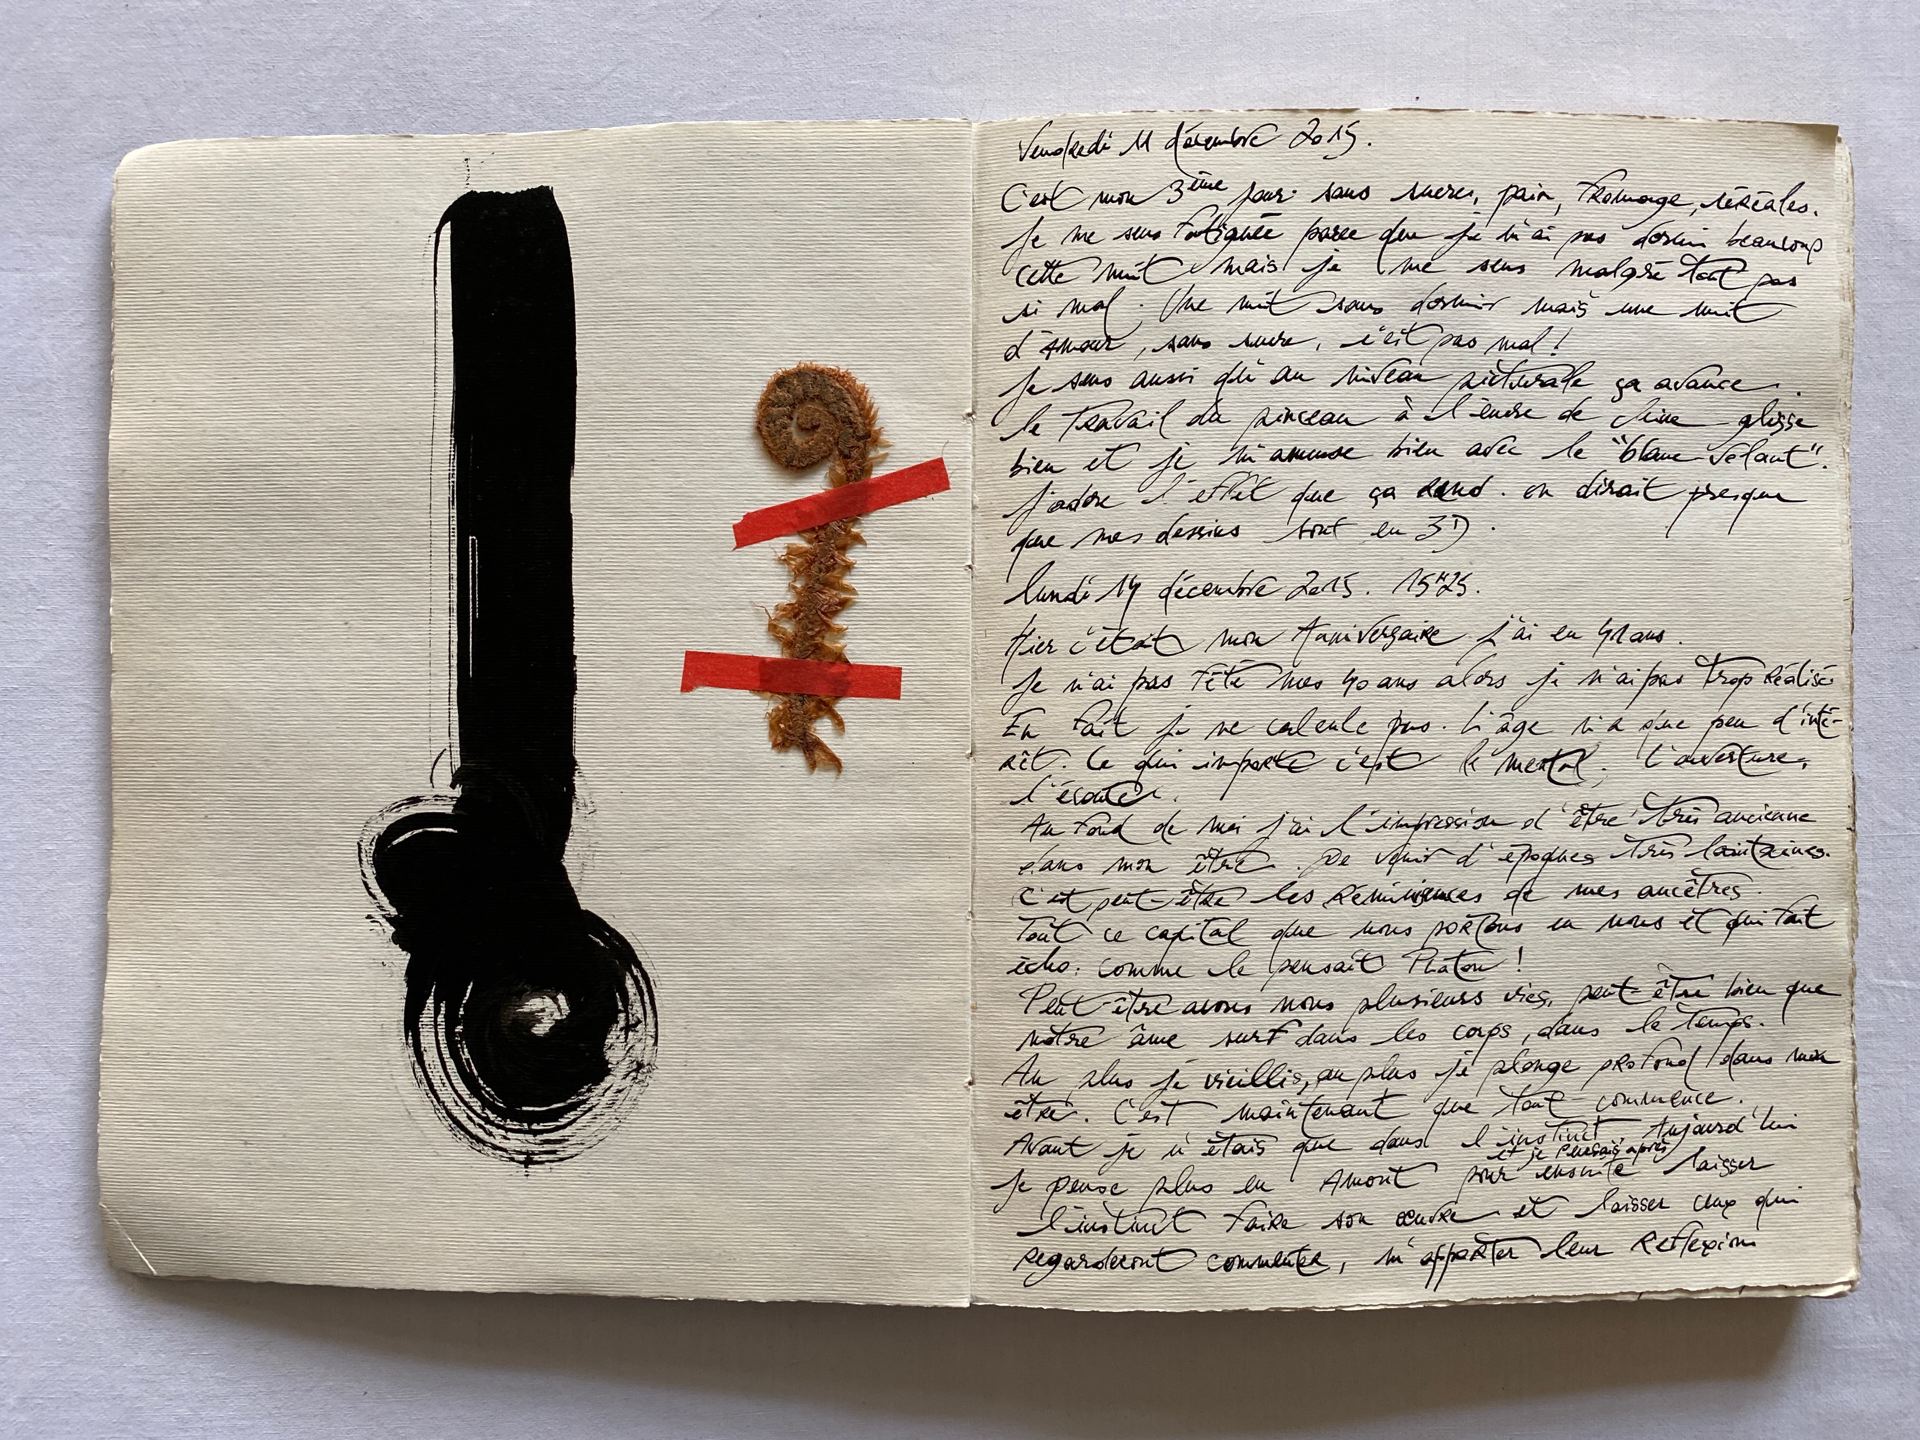 Vendredi 11 décembre 2015.
C'est mon 3ème jour sans sucres, pain, fromage, céréales.
Je me sens fatiguée parce que je n'ai pas dormi beaucoup
cette nuit mais je me sens malgré tout pas
si mal. Une nuit sans dormir mais une nuit
d'Amour, sans sucre, c'est pas mal !
Je sens aussi qu'au niveau picturale ça avance.
le Travail du pinceau à l'encre de chine glisse
bien et je m'amuse bien avec le "blanc-volant".
J'adore l'effet que ça rend. on dirait presque
que mes dessins sont en 3D.
lundi 14 décembre 2015. 15H25.
Hier c'était mon Anniversaire j'ai eu 41 ans.
Je n'ai pas fêté mes 40 ans alors je n'ai pas trop réalisé
En fait je ne calcule pas. L'âge n'a que peu d'inté-
rêt. Ce qui importe c'est le mental, l'ouverture,
l'écoute.
Au fond de moi j'ai l'impression d'être très ancienne
dans mon être. De venir d'époques très lointaines.
C'est peut-être les réminiscences de mes ancêtres.
Tout ce capital que nous portons en nous et qui fait
écho, comme le pensait Platon !
Peut-être avons nous plusieurs vies, peut-être bien que
notre âme surf dans les corps, dans le temps.
Au plus je vieillis, au plus je plonge profond dans mon
être. C'est maintenant que tout commence.
Avant je n'étais que dans l'instinct, Aujourd'hui
et je pensais après
je pense plus en Amont pour ensuite laisser
l'instinct faire son œuvre et laisser ceux qui
regarderont commenter, m'apporter leur réflexion